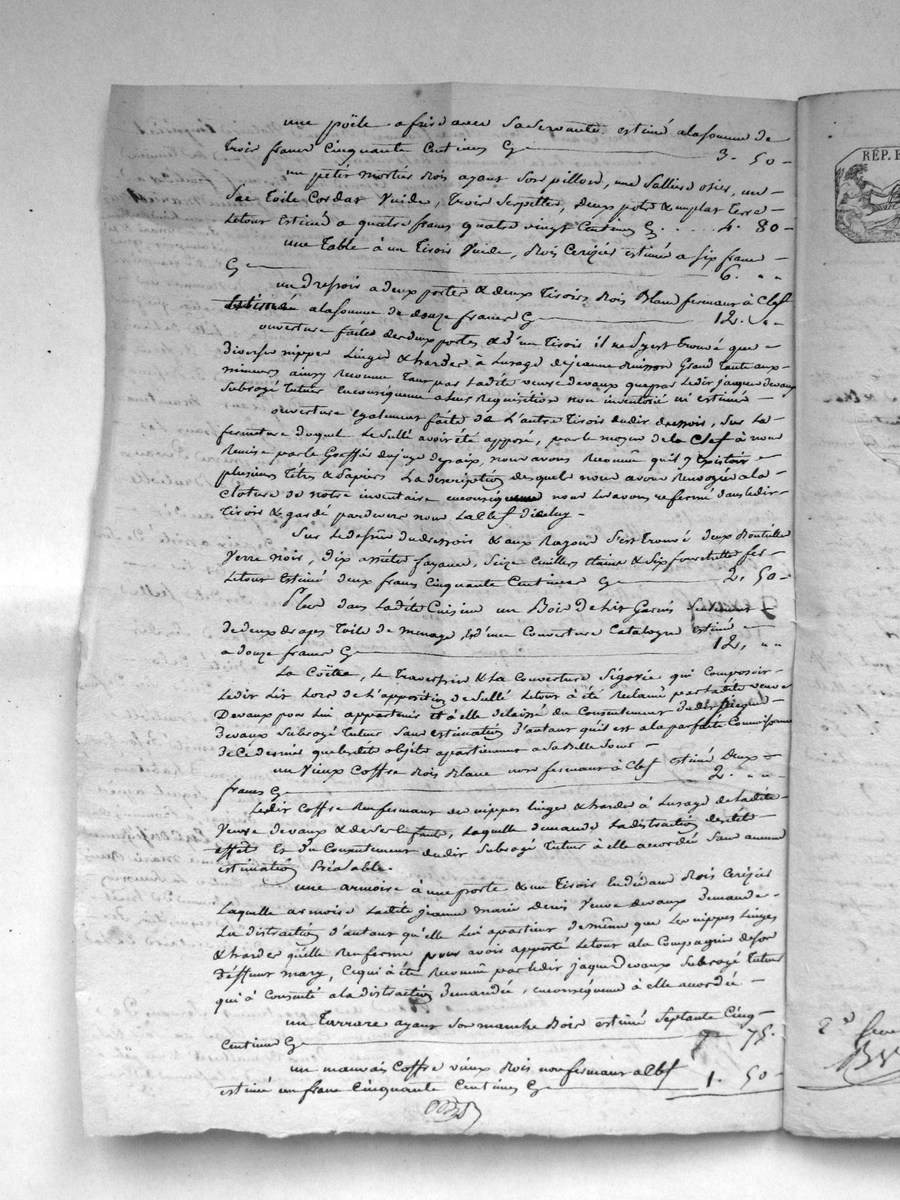 une poële a frire avec sa servante estimé a la somme de
trois francs cinquante centimes Cy 3. 50
un petit mortier Bois ayant son pillon, une Salliere osier, un
Sac toile Cordat Vuide, trois serpettes, deux pots & un plat terre
Le tout Estimé a quatre francs quatre vingt Centimes Cy 4. 80
une Table à un Tiroir Vuide, Bois Cerizier estimé a Six francs
Cy 6. " "
un dressoir a deux portes & deux Tiroirs Bois Blanc fermant à Clef
a la somme de douze francs Cy 12. " "
ouverture faite des deux portes, & d'un Tiroir il ne s'y est trouvé que
diverses nippes Linges & hardes à Lusage de jeanne Buisson Grand tante aux
mineurs ainsy Reconnu Tant par Ladite veuve devaux que par Ledit jacques devaux
Subrogé Tuteur En consequence a Leur Requisition non inventorié ni estimé
ouverture également faite de L'autre Tiroir dudit dressoir, Sur La
fermeture duquel Le Sellé avoit été apposé, par le moyen de la Clef à nous
Remise par le Greffier du juge de paix, nous avons Reconnu qu'il y Existoit
plusieurs Titres & Papiers La description desquels nous avons Renvoyée a la
Cloture de notre inventaire en consequence nous les avons refermé dans Ledit
Tiroir & gardé par devers nous La Clef d'iceluy
Sur Le dessus du dressoir & aux Rayons s'est trouvé deux Bouteilles
Verre noir, dix assiettes fayance, Seize cuilliers étaing & Six fourchettes fer
Le tout Estimé deux francs Cinquante Centimes Cy 2. 50
Plus dans Ladite Cuisine un Bois de Lit Garni seulement
de deux draps Toile de menage, & d'une Couverture Catalogne estimé
a douze francs Cy 12, " "
La Coëtre, Le Traversin & La Couverture qui Composoit
Ledit Lit Lors de L'apposition de Sellé Le tout à été Reclamé par Ladite veuve
Devaux pour Lui appartenir et à elle délaissé du Consentement dudit jacques
devaux Subrogé Tuteur Sans estimation d'autant qu'il est a la parfaite Connaissance
de Ce dernier que lesdits objets apartiennent a sa Belle Soeur
un Vieux Coffre Bois Blanc non fermant à Clef estimé Deux
francs Cy 2. " "
Ledit Coffre Renfermant des nippes linges & hardes à Lusage de Ladite
Veuve devaux & de Ses Enfants, Laquelle demande La distraction desdits
effets Et du Consentement dudit Subrogé Tuteur à elle accordée Sans aucune
estimation Préalable.
une armoire à une porte & un Tiroir en dedans Bois Cerizier
Laquelle armoire Ladite jeanne marie Denis Veuve devaux demande
La distraction d'autant qu'elle Lui apartient de même que Les nippes Linges
& hardes qu'elle Renferme pour avoir apporté Le tout a la Compagnie de son
Deffunt mary, Ce qui à été Reconnu par Ledit jaques Devaux Subrogé Tuteur
qui à Consenté a la distraction Demandée, en consequence à elle accordée
un Tarrare ayant Son manche Bois estimé Septante Cinq
Centimes Cy " 75.
un mauvais Coffre vieux Bois non fermant a Clef
estimé un franc Cinquante Centimes Cy 1. 50
RÉP. F
2d